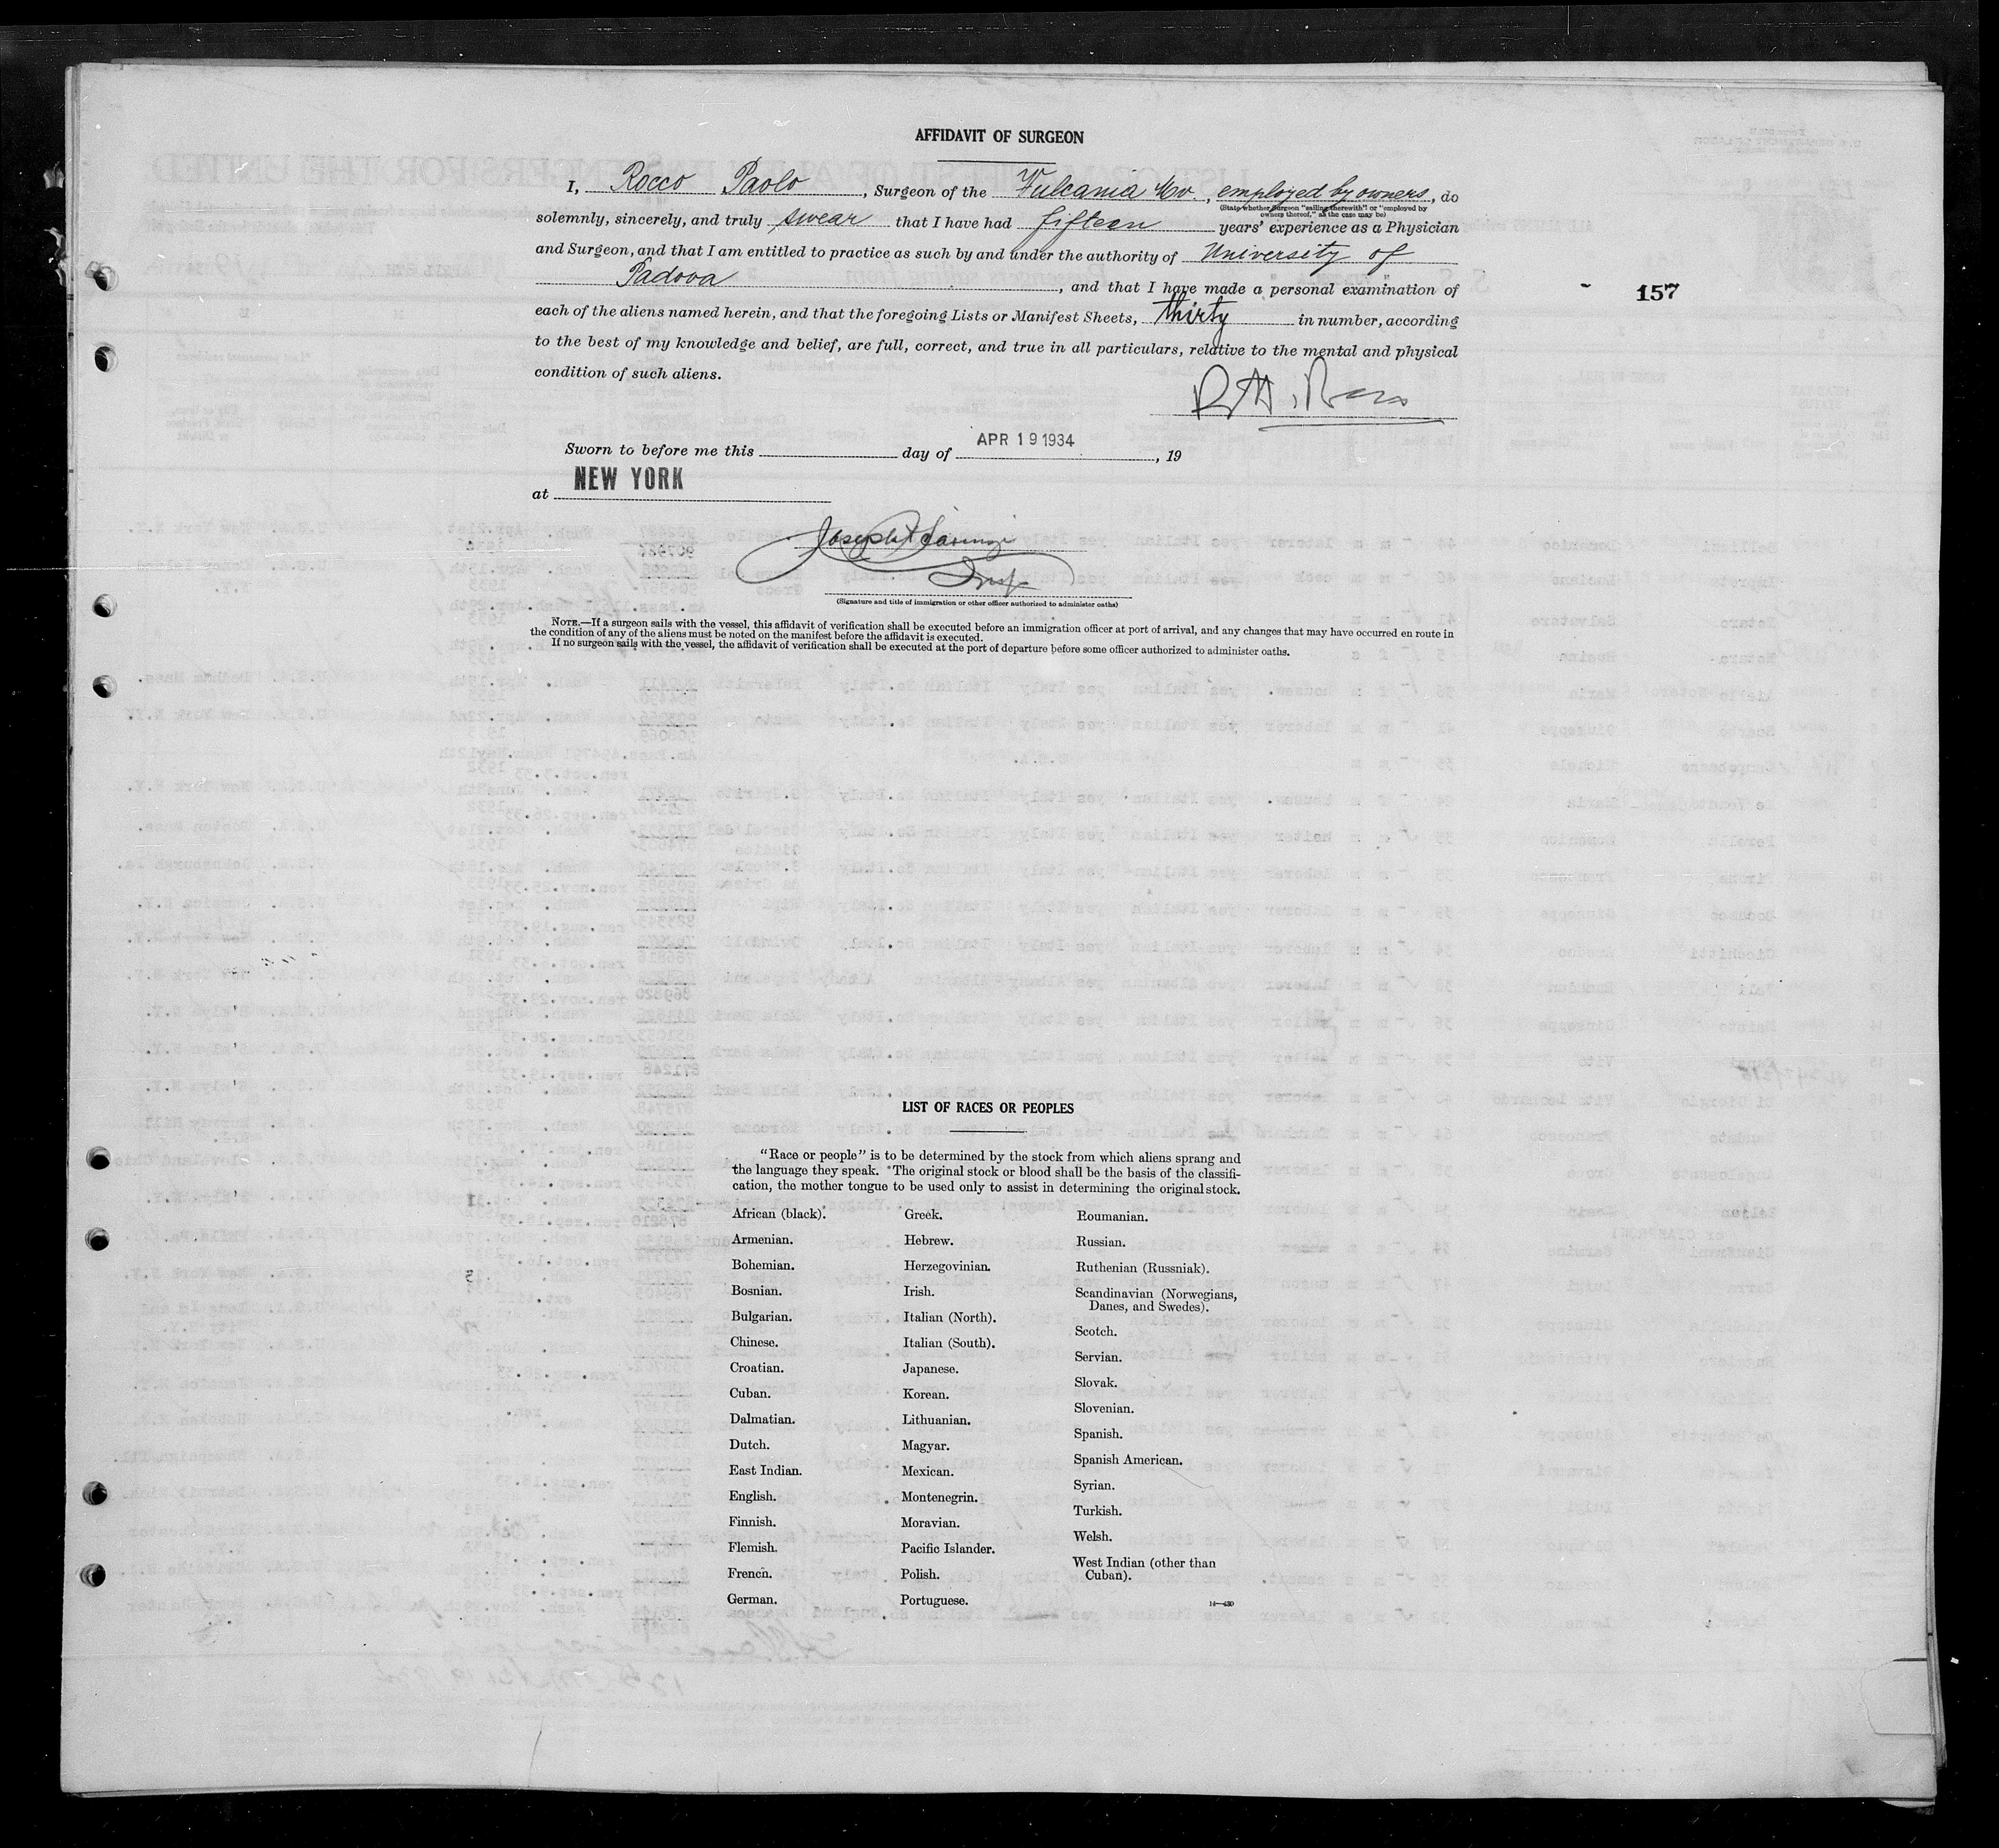 AFFIDAVIT OF SURGEON
I, Rocco Paolo, Surgeon of the Vulcania Mv., employed by owners, do
(State whether Surgeon "sailing therewith" or "employed by
owners thereof," as the case may be)
solemnly, sincerely, and truly swear that I have had fifteen years' experience as a Physician
and Surgeon, and that I am entitled to practice as such by and under the authority of University of
Padova, and that I have made a personal examination of
157
each of the aliens named herein, and that the foregoing Lists or Manifest Sheets, thirty in number, according
to the best of my knowledge and belief, are full, correct, and true in all particulars, relative to the mental and physical
condition of such aliens.
Sworn to before me this day of APR 19 1934, 19
at NEW YORK
Insp
(Signature and title of immigration or other officer authorized to administer oaths)
NOTE.—If a surgeon sails with the vessel, this affidavit of verification shall be executed before an immigration officer at port of arrival, and any changes that may have occurred en route in
the condition of any of the aliens must be noted on the manifest before the affidavit is executed.
If no surgeon sails with the vessel, the affidavit of verification shall be executed at the port of departure before some officer authorized to administer oaths.
LIST OF RACES OR PEOPLES
"Race or people" is to be determined by the stock from which aliens sprang and
the language they speak. The original stock or blood shall be the basis of the classifi-
cation, the mother tongue to be used only to assist in determining the original stock.
African (black).
Armenian.
Bohemian.
Bosnian.
Bulgarian.
Chinese.
Croatian.
Cuban.
Dalmatian.
Dutch.
East Indian.
English.
Finnish.
Flemish.
French.
German.
Greek.
Hebrew.
Herzegovinian.
Irish.
Italian (North).
Italian (South).
Japanese.
Korean.
Lithuanian.
Magyar.
Mexican.
Montenegrin.
Moravian.
Pacific Islander.
Polish.
Portuguese.
Roumanian.
Russian.
Ruthenian (Russniak).
Scandinavian (Norwegians,
Danes, and Swedes).
Scotch.
Servian.
Slovak.
Slovenian.
Spanish.
Spanish American.
Syrian.
Turkish.
Welsh.
West Indian (other than
Cuban).
14—430